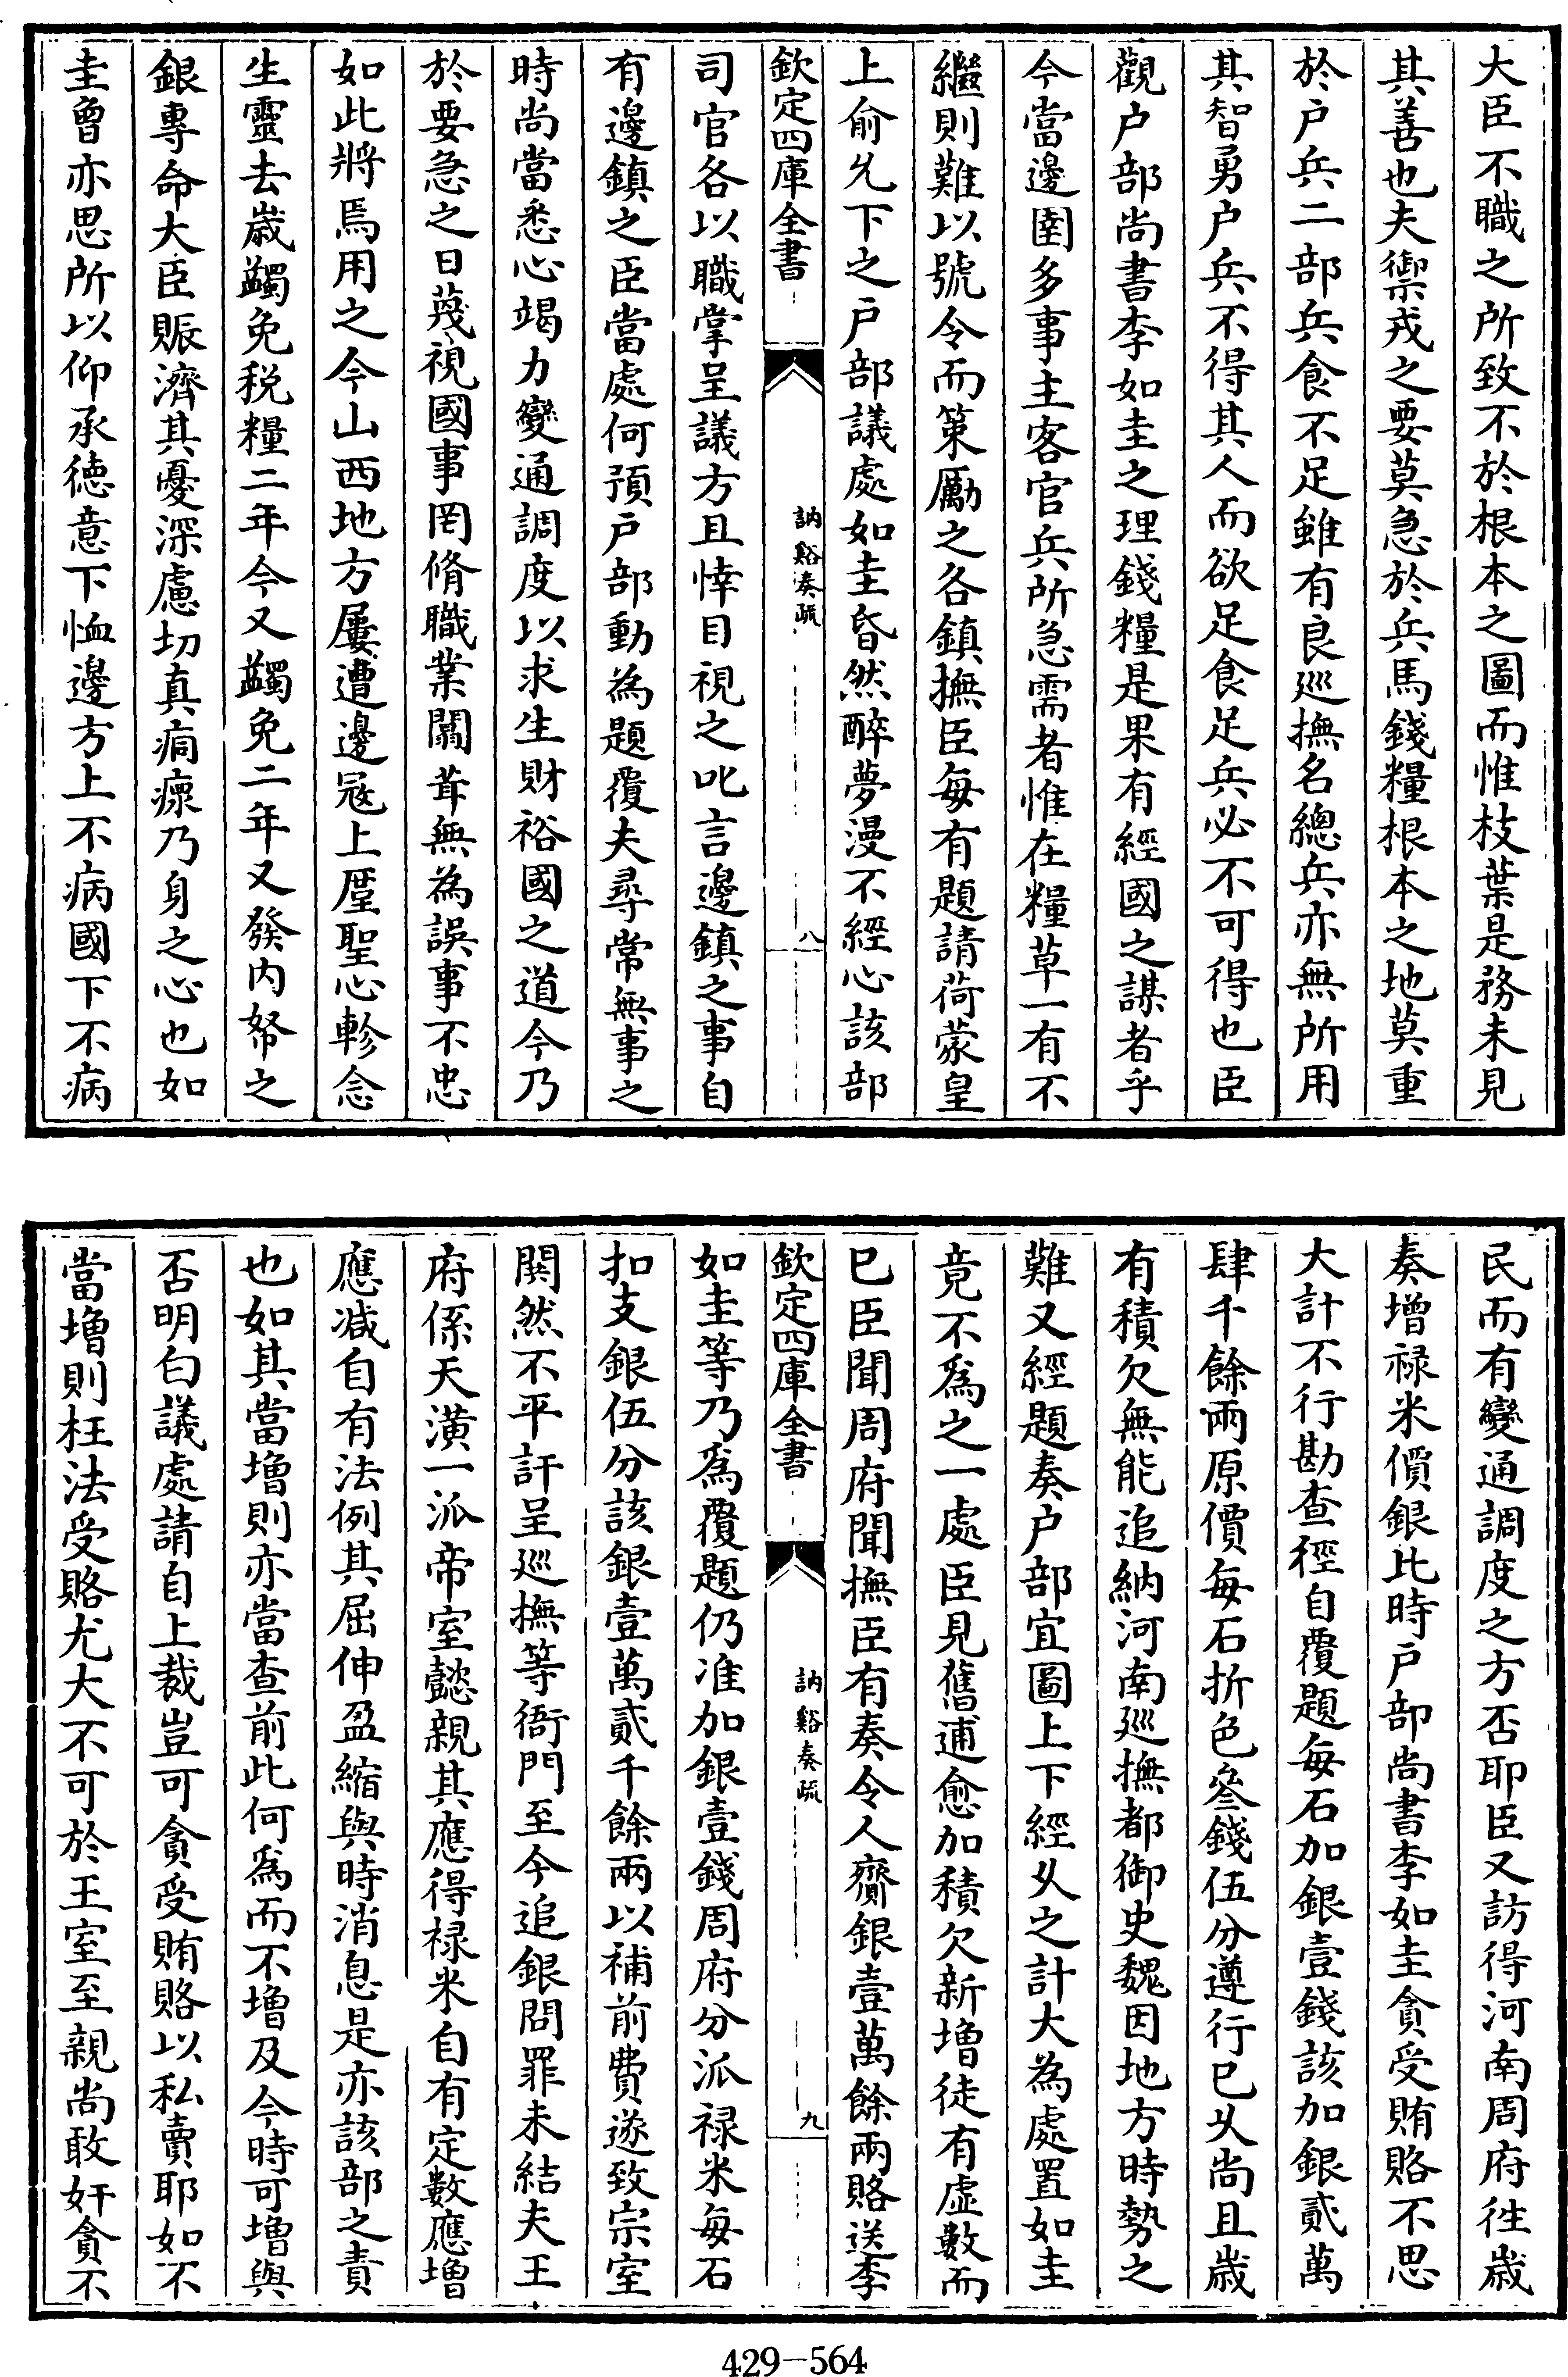 大臣不職之所致不於根本之圖而惟枝葉是務未見
其善也夫禦戎之要莫急於兵馬錢糧根本之地莫重
於户兵二部兵食不足雖有良巡撫名總兵亦無所用
其智勇户兵不得其人而欲足食足兵必不可得也臣
觀户部尚書李如圭之理錢糧是果有經國之謀者乎
今當邊圉多事主客官兵所急需者惟在糧草一有不
繼則難以號令而策勵之各鎮撫臣每有題請荷蒙皇
上俞允下之户部議處如圭昏然醉夢漫不經心該部
欽定四庫全書
訥谿奏疏
八
司官各以職掌呈議方且悻目視之叱言邊鎮之事自
有邊鎮之臣當處何預户部動為題覆夫尋常無事之
時尚當悉心竭力變通調度以求生財裕國之道今乃
於要急之日蔑視國事罔脩職業闒茸無為誤事不忠
如此將焉用之今山西地方屢遭邊冦上厪聖心軫念
生靈去歲蠲免税糧二年今又蠲免二年又發内帑之
銀專命大臣賑濟其憂深慮切真痌瘝乃身之心也如
圭曾亦思所以仰承徳意下恤邊方上不病國下不病
民而有變通調度之方否耶臣又訪得河南周府徃歳
奏增禄米價銀比時户部尚書李如圭貪受賄賂不思
大計不行勘查徑自覆題每石加銀壹錢該加銀貳萬
肆千餘兩原價每石折色叄錢伍分遵行已乆尚且歳
有積欠無能追納河南廵撫都御史魏因地方時勢之
難又經題奏户部宜圖上下經乆之計大為處置如圭
竟不為之一處臣見舊逋愈加積欠新增徒有虚數而
已臣聞周府聞撫臣有奏令人齎銀壹萬餘兩賂送李
欽定四庫全書
訥谿奏疏
九
如圭等乃為覆題仍准加銀壹錢周府分派禄米每石
扣支銀伍分該銀壹萬貳千餘兩以補前費遂致宗室
鬨然不平訐呈廵撫等衙門至今追銀問罪未結夫王
府係天潢一派帝室懿親其應得禄米自有定數應增
應减自有法例其屈伸盈縮與時消息是亦該部之責
也如其當增則亦當查前此何為而不增及今時可增與
否明白議處請自上裁豈可貪受賄賂以私賣耶如不
當增則枉法受賂尤大不可於王室至親尚敢奸貪不
429-564